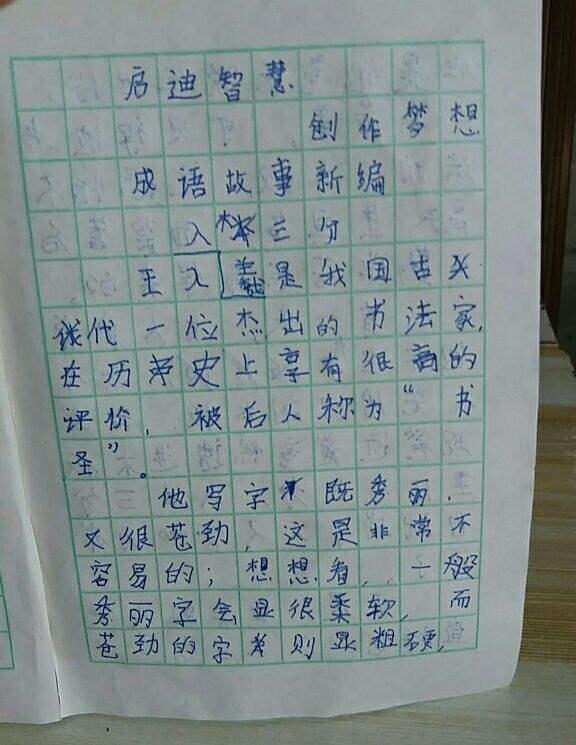 启迪智慧
创作梦想
成语故事新编
入木三分
王义羲是我国古
代一位杰出的书法家,
在历史上享有很高的
评价,被后人称为“书
圣”。
他写字既秀丽,
又很苍劲,这是非常不
容易的;想想看,一般
秀丽字会显很柔软,而
苍劲的字则显粗硬,